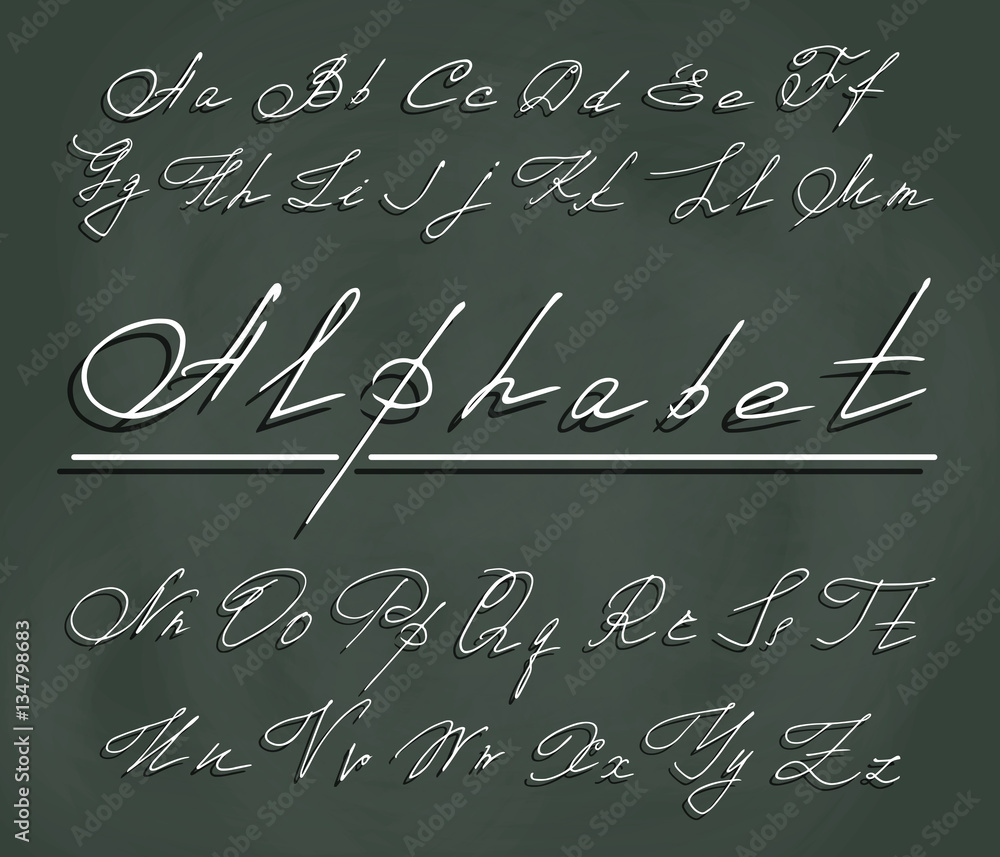 Aa Bb Cc Dd Ee Ff
Gg Hh Ii Jj Kk Ll Mm
Alphabet
Nn Oo Pp Qq Rr Ss Tt
Uu Vv Ww Xx Yy Zz
Adobe Stock | #134798683